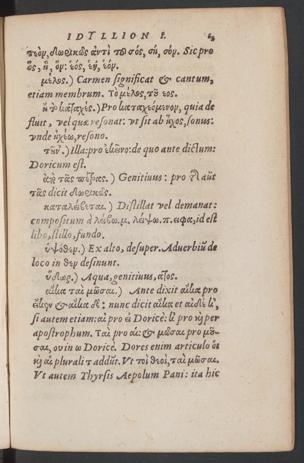 IDYLLION I.
δωρικῶς ἀντὶ τοῦ σός, σὴ, σόν. Sic pro
ὅς, ἣ, ὅν: ἑός, ἑὴ, ἑόν.
μέλος.) Carmen significat & cantum,
etiam membrum. Τὸ μέλος, τοῦ εος.
καταχὲς.) Pro καταχεόμενον, quia de
fluit, vel quia resonat: vt sit ab ἦχος, sonus:
vnde ἠχέω, resono.
τῆν.) Illa: pro ἐκεῖνο: de quo ante dictum:
Doricum est.
ἀπὸ τᾶς πέτρας.) Genitiuus: pro
τᾶς dicit δωρικῶς.
καταλείβεται.) Distillat vel demanat:
compositum à λείβω. μ. λείψω. π. ειφα, id est
libo, stillo, fundo.
ὑψόθεν.) Ex alto, desuper. Aduerbiū de
loco in θεν desinunt.
ὕδωρ.) Aqua, genitiuus, ατος.
αἴκα ταὶ μῶσαι.) Ante dixit αἴκα pro
& αἴκα δὲ: nunc dicit αἴκα et
si autem etiam: αἱ pro εἰ Doricè: pro per
apostrophum. Ταὶ pro αἱ: & μῶσαι pro μοῦ-
σαι, ου in ω Doricè. Dores enim articulo οἱ
αἱ plurali τ addūt. Vt τοὶ θεοὶ, ταὶ μῶσαι.
Vt autem Thyrsis Aepolum Pani: ita hic